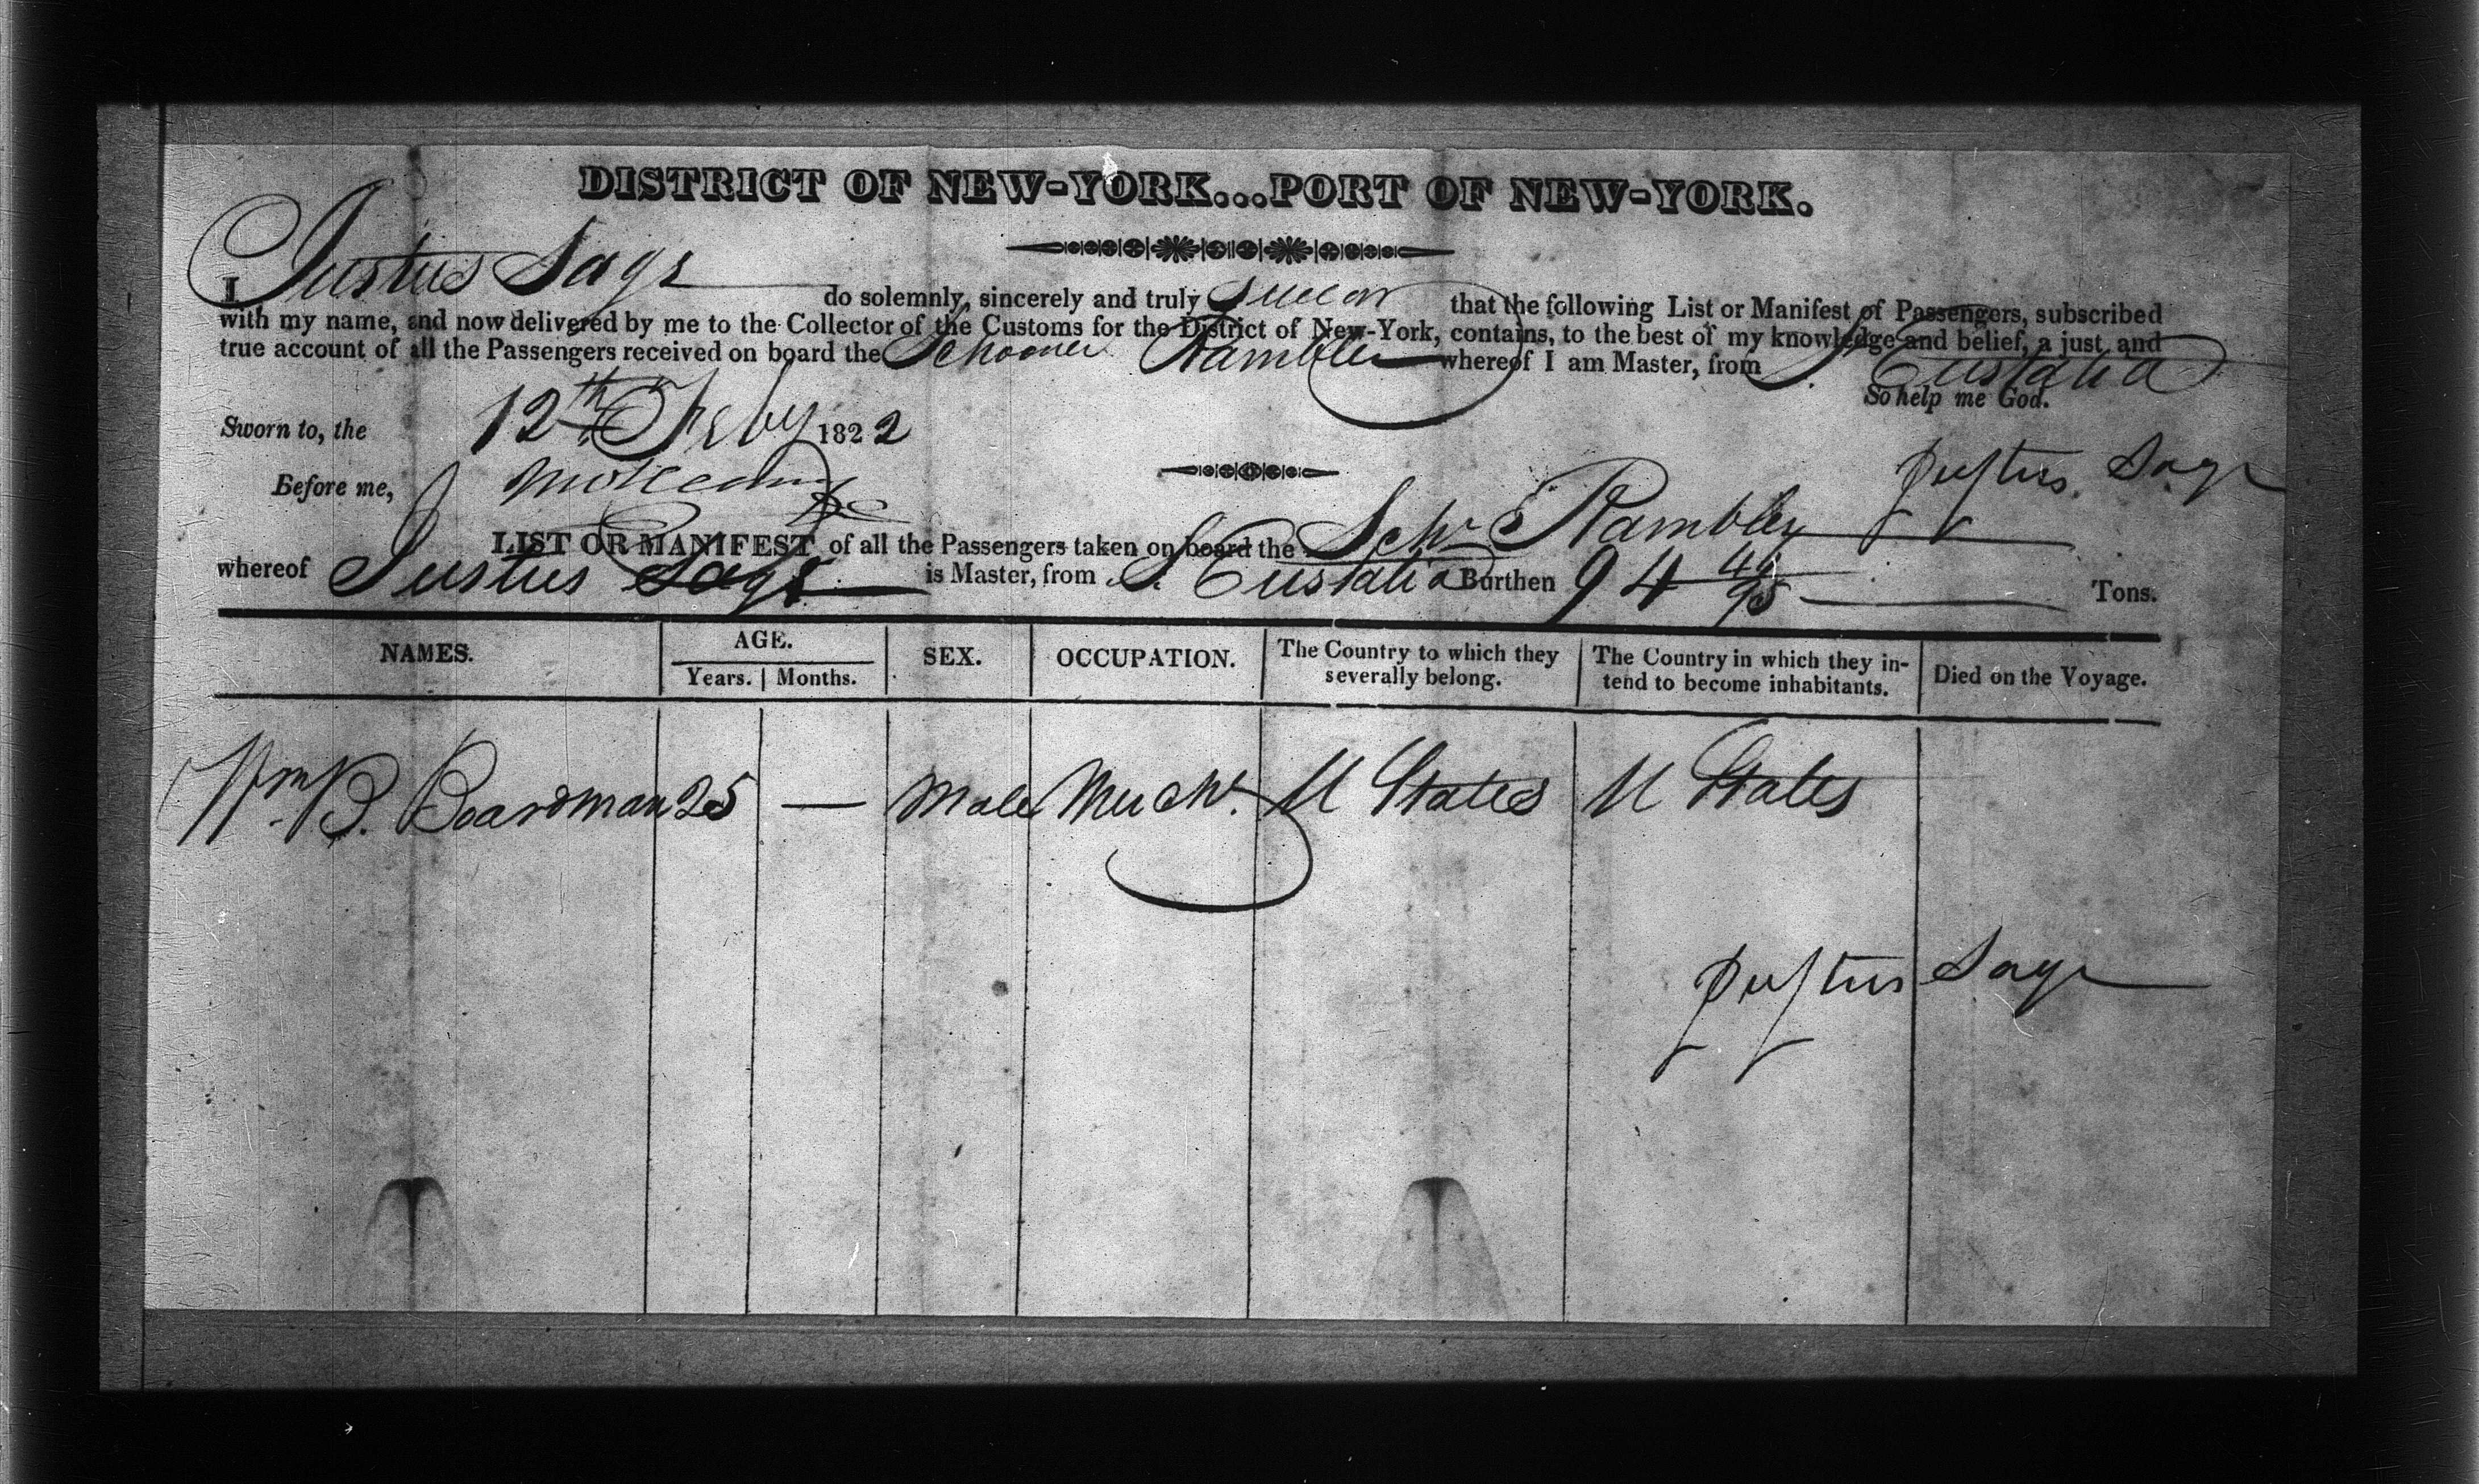 DISTRICT OF NEW-YORK...PORT OF NEW-YORK.
I Justus Sage do solemnly, sincerely and truly Swear that the following List or Manifest of Passengers, subscribed
with my name, and now delivered by me to the Collector of the Customs for the District of New-York, contains, to the best of my knowledge and belief, a just and
true account of all the Passengers received on board the Schooner Rambler whereof I am Master, from St. Eustatia
So help me God.
Sworn to, the 12th Feby 1822
Justus Sage
Before me,
LIST OR MANIFEST of all the Passengers taken on board the Schr Rambler
whereof Justus Sage is Master, from St. Eustatia Burthen 94 /95 Tons.
NAMES. AGE. SEX. OCCUPATION. The Country to which they severally belong. The Country in which they in- tend to become inhabitants. Died on the Voyage.
Years. Months.
Wm B. Boardman 25 — Male Mercht. U States U States
Justus Sage